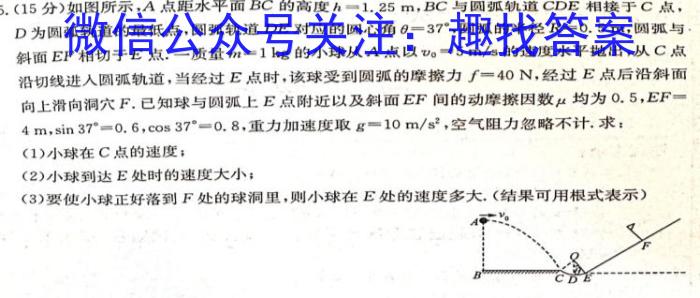 5.(15分)如图所示,A点距水平面BC的高度h=1.25 m,BC与圆弧轨道CDE相接于C点,
D为圆弧轨道的最低点,圆弧轨道DE对应的圆心角θ=37°,圆弧的半径R=0.5 m,圆弧与
斜面EF相切于E点.一质量m=1 kg的小球从A点以v₀= m/s的速度水平抛出,从C点
微信公众号关注:趣找答案
沿切线进入圆弧轨道,当经过E点时,该球受到圆弧的摩擦力f=40 N,经过E点后沿斜面
向上滑向洞穴F.已知球与圆弧上E点附近以及斜面EF间的动摩擦因数μ均为0.5,EF=
4 m,sin 37°=0.6,cos 37°=0.8,重力加速度取g=10 m/s²,空气阻力忽略不计.求:
(1)小球在C点的速度;
(2)小球到达E处时的速度大小;
(3)要使小球正好落到F处的球洞里,则小球在E处的速度多大.(结果可用根式表示)
A v₀
F
O
B C D E